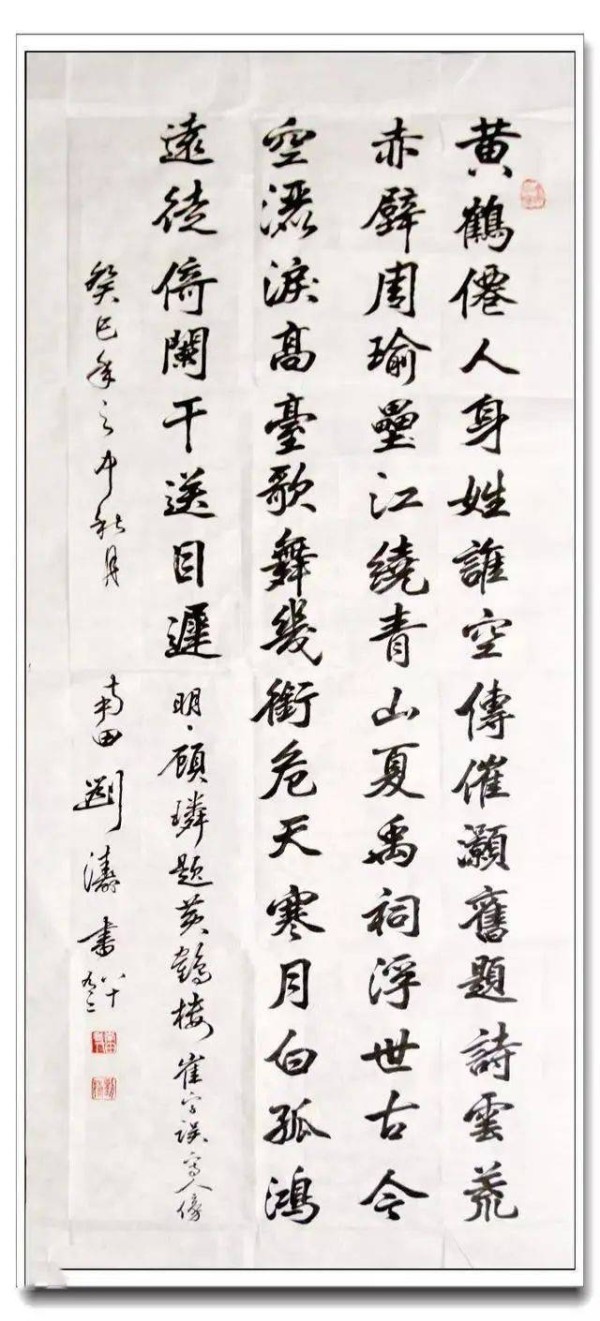 黄鶴僊人身姓誰空傳催灝舊題詩雲荒
赤壁周瑜壘江繞青山夏禹祠浮世古今
空灑淚高臺歌舞幾銜危天寒月白孤鴻
遠徒倚闌干送目遲 明·顾璘题黄鹤楼 崔字误写人傍
癸巳年之中秋月 田劉濤書 八十又二